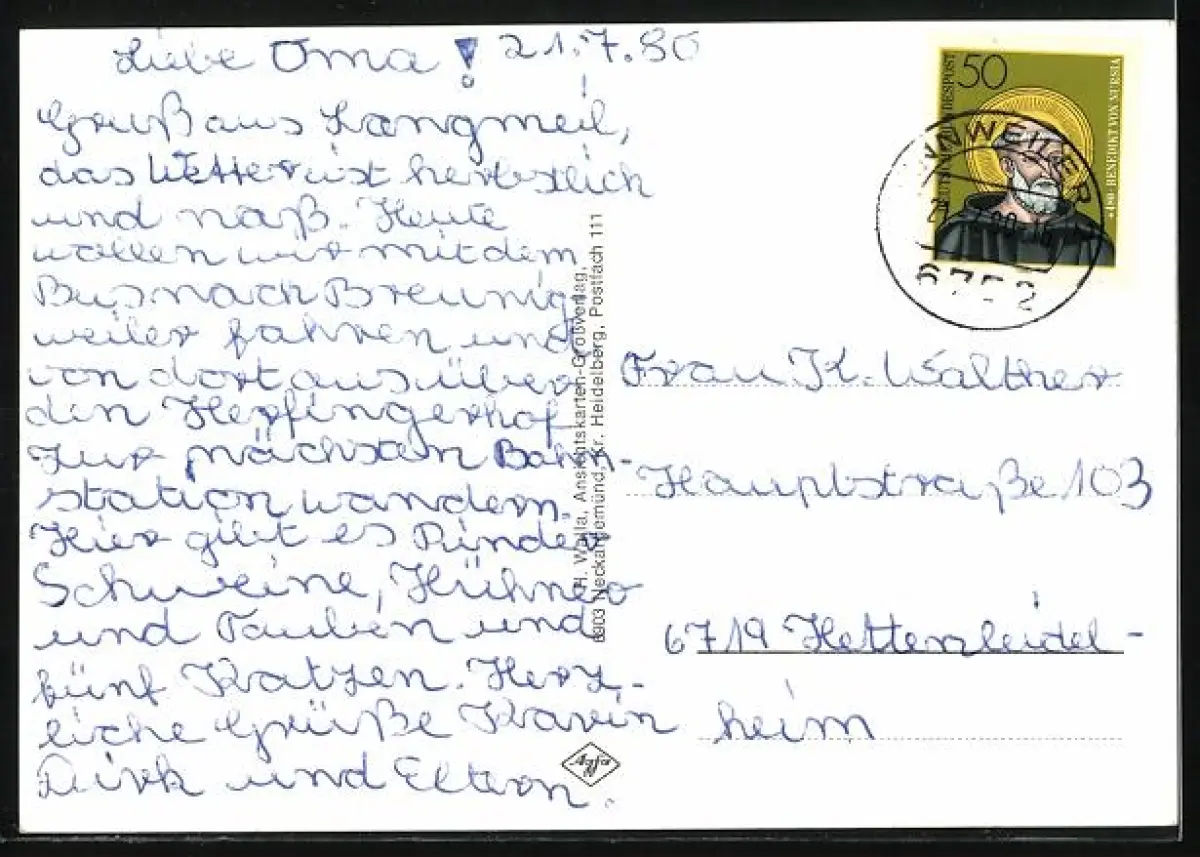 Liebe Oma! 21.7.80
Gruß aus Langmeil,
das Wetter ist herbstlich
und naß. Heute
wollen wir mit dem
Bus nach Breunig
weiler fahren und
von dort aus über
den Herfingerhof
zur nächsten Bahn-
station wandern.
Hier gibt es Rinder
Schweine, Hühner
und Tauben und
fünf Katzen. Herz-
liche Grüße Karin
Dirk und Eltern.
H. Walla, Ansichtskarten-Großverlag,
6903 Neckargemünd, Kr. Heidelberg, Postfach 111
Agfa
50
DEUTSCHE BUNDESPOST
*480 · BENEDIKT VON NURSIA
NNWEILER
6752
Frau K. Walther
Hauptstraße 103
6719 Hettenleidel-
heim